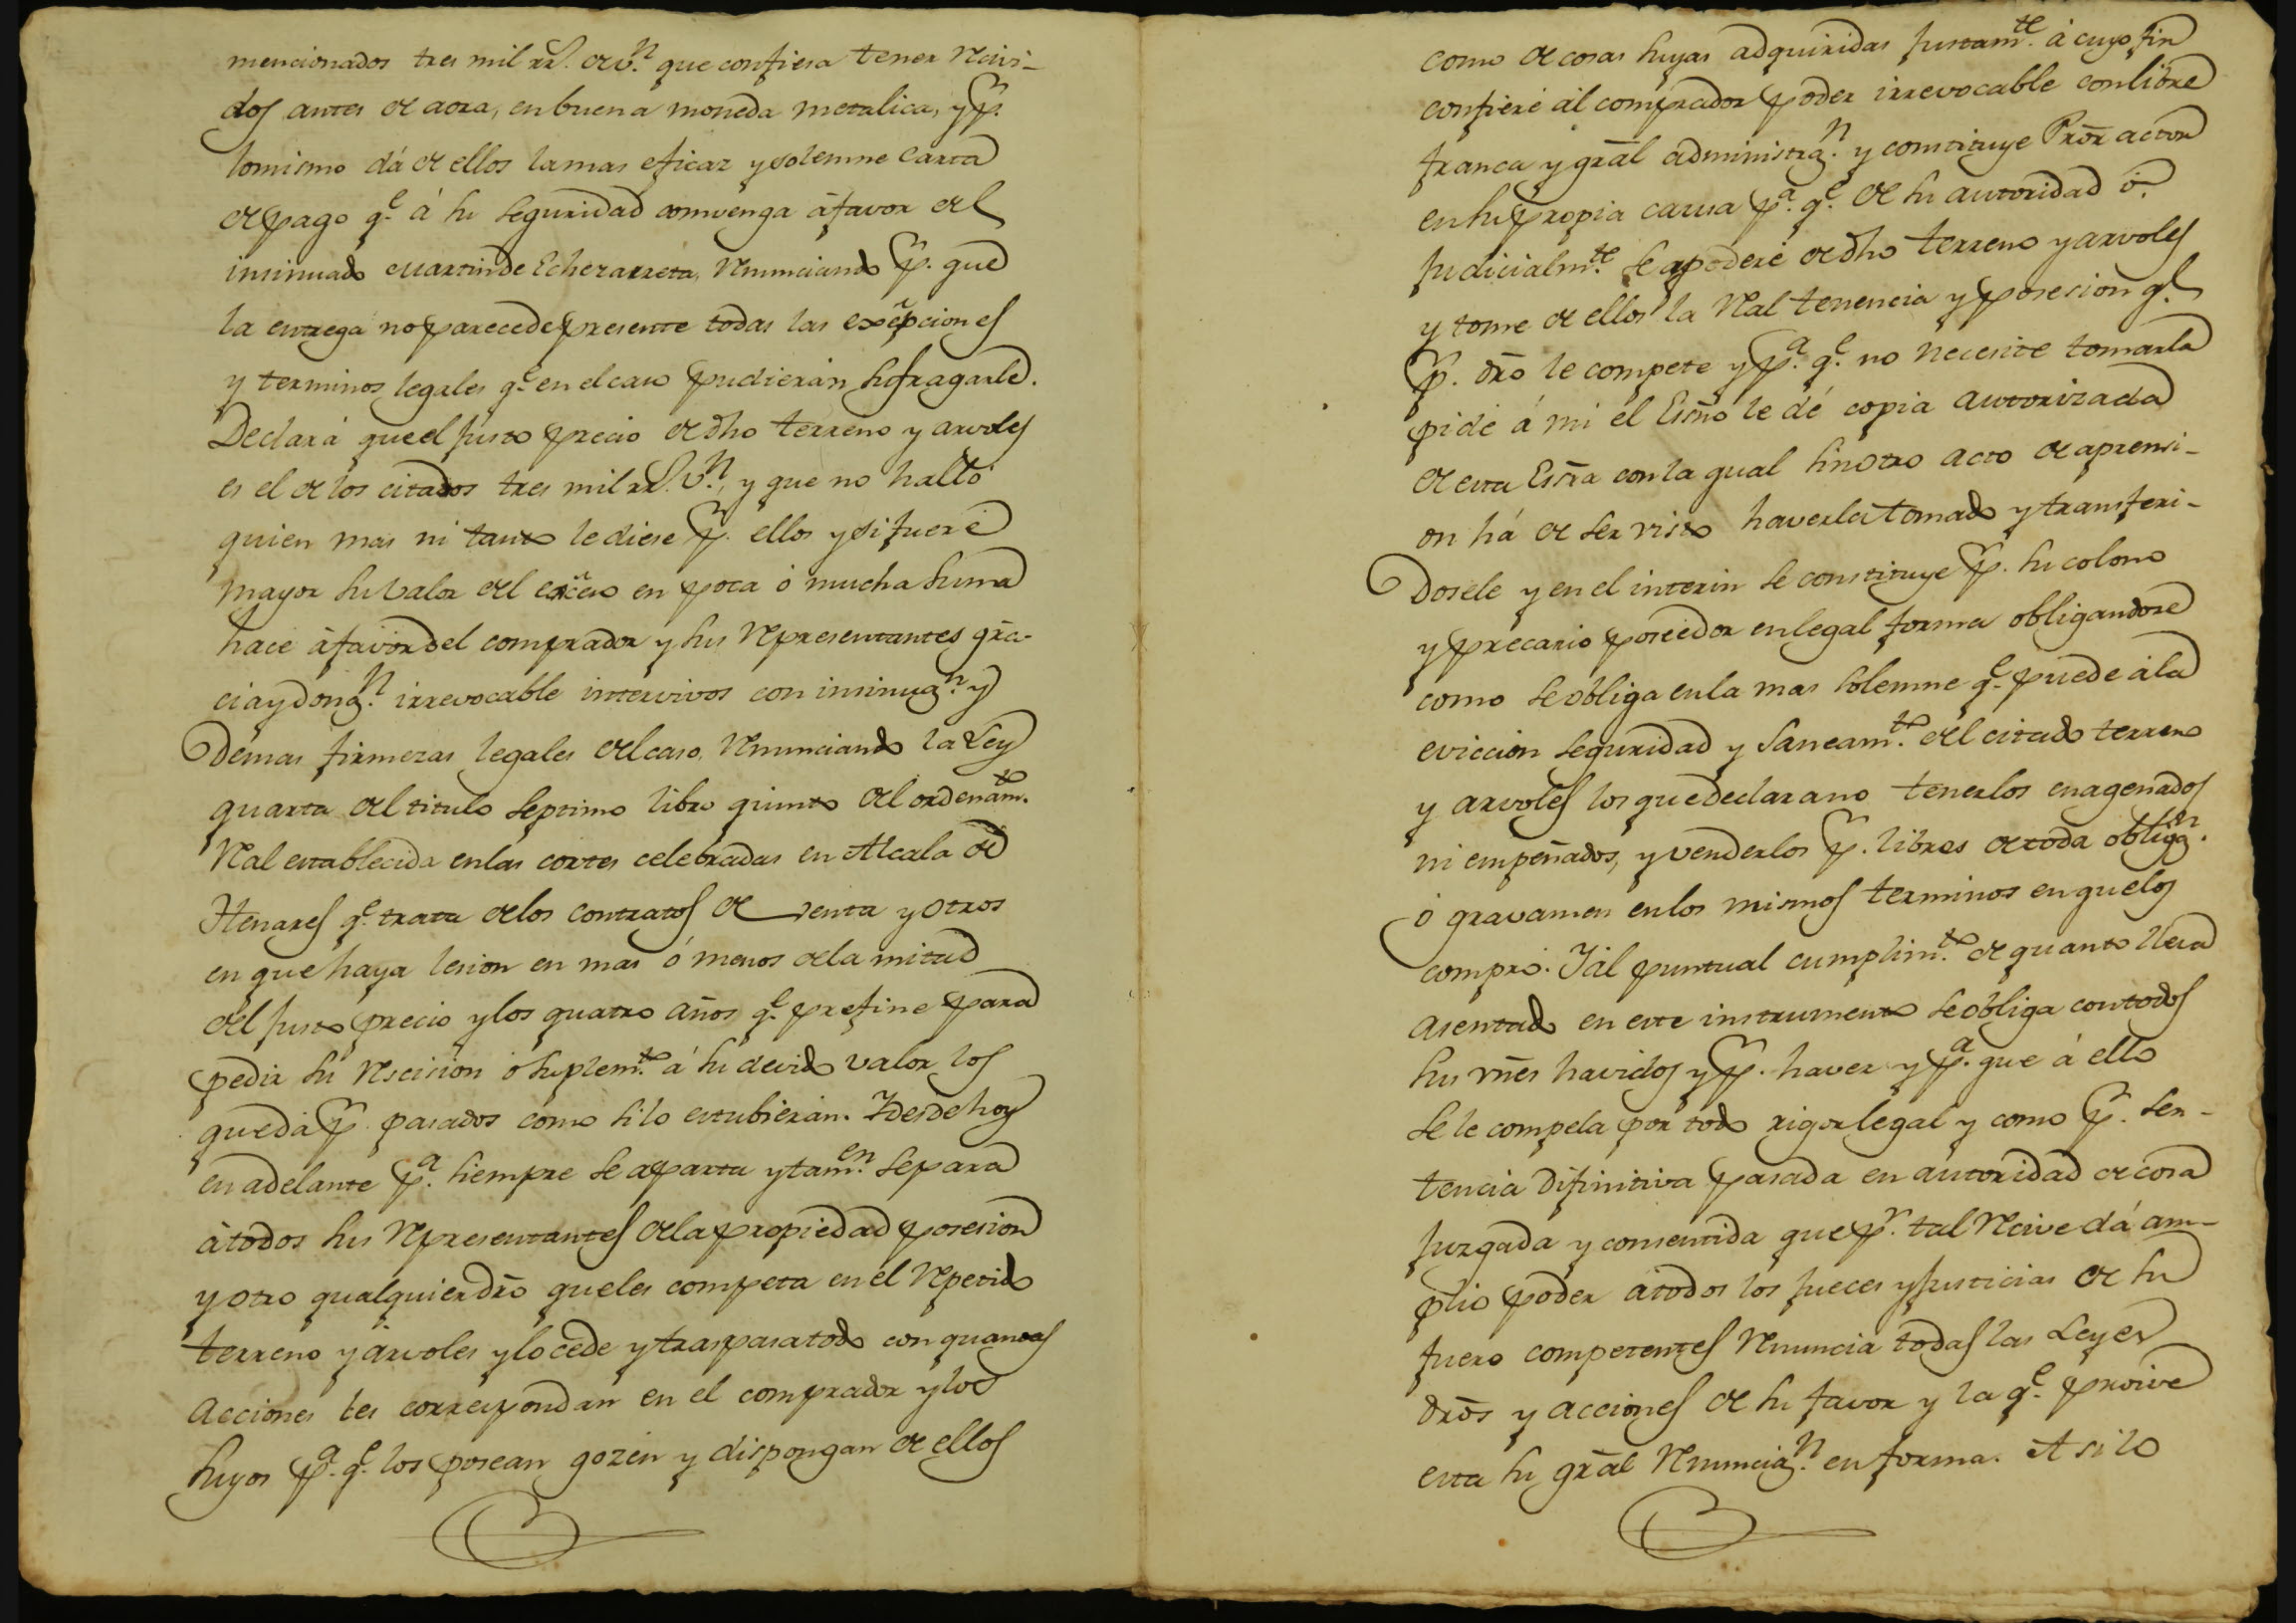 mencionados tres mil rr.ˢ de v.ⁿ que confiesa tener Recivi-
dos antes de aora, en buena moneda metalica, y p.ʳ
lo mismo dá de ellos la mas eficaz y solemne carta
de pago q.ᵉ á su seguridad convenga á favor del
insinuado Martin de Echezarreta, Renunciando p.ʳ que
la entrega no parece de presente todas las exẽpciones
y terminos legales q.ᵉ en el caso pudieran sufragarle.
Declara que el justo precio de dho terreno y arvoles
es el de los citados tres mil rr.ˢ v.ⁿ, y que no halló
quien mas ni tanto le diese p.ʳ ellos y si fuere
mayor su valor del exceso en poca ó mucha suma
hace á favor del comprador y sus Representantes gra-
cia y donaz.ⁿ irrevocable intervivos con insinuaz.ⁿ y
demas firmezas legales del caso, Renunciando la Ley
quarta del titulo septimo libro quinto del ordenam.ᵗᵒ
Real establecida en las cortes celebradas en Alcala de
Henares q.ᵉ trata de los contratos de venta y otros
en que haya lesion en mas ó menos de la mitad
del justo precio y los quatro años q.ᵉ prefine para
pedir su Rescision ó suplem.ᵗᵒ á su devido valor los
que dá p.ʳ pasados como si lo estubieran. Y desde hoy
en adelante p.ᵃ siempre se aparta y tam.ᵉⁿ separa
á todos sus Representantes de la propiedad posesion
y otro qualquier dro que les competa en el Repetido
terreno y arvoles y lo cede y traspasa todo con quantas
acciones les correspondan en el comprador y los
suyos p.ᵃ q.ᵉ los posean gozen y dispongan de ellos
como de cosas suyas adquiridas justam.ᵗᵉ á cuyo fin
confiere ál comprador poder irrevocable con libre
franca y grãl administraz.ⁿ y constituye Prõr actor
en su propia causa p.ᵃ q.ᵉ de su autoridad ó
judicialm.ᵗᵉ se apodere de dho terreno y arvoles
y tome de ellos la Real tenencia y posesion q.ᵉ
p.ʳ dro le compete y p.ᵃ q.ᵉ no necesite tomarla
pide á mi el Esno le dé copia autorizada
de esta Esrra con la qual sin otro acto de aprensi-
on há de ser visto haverla tomado y transferi-
dosele y en el interin se constituye p.ʳ su colono
y precario poseedor en legal forma obligandose
como se obliga en la mas solemne q.ᵉ puede á la
eviccion seguridad y saneam.ᵗᵒ del citado terreno
y arvoles los que declara no tenerlos enagenados
ni empeñados, y venderlos p.ʳ libres de toda obligaz.ⁿ
ó gravamen en los mismos terminos en que los
compró. Y ál puntual cumplim.ᵗᵒ de quanto lleva
asentado en este instrumento se obliga con todos
sus vnẽs havidos y p.ʳ haver y p.ᵃ que á ello
se le compela por todo rigor legal y como p.ʳ sen-
tencia difinitiva pasada en autoridad de cosa
juzgada y consentida que p.ʳ tal Recive dá am-
plio poder á todos los jueces y justicias de su
fuero competentes Renuncia todas las Leyes
drõs y acciones de su favor y la q.ᵉ proive
esta su grãl Renunciaz.ⁿ en forma. Asi lo